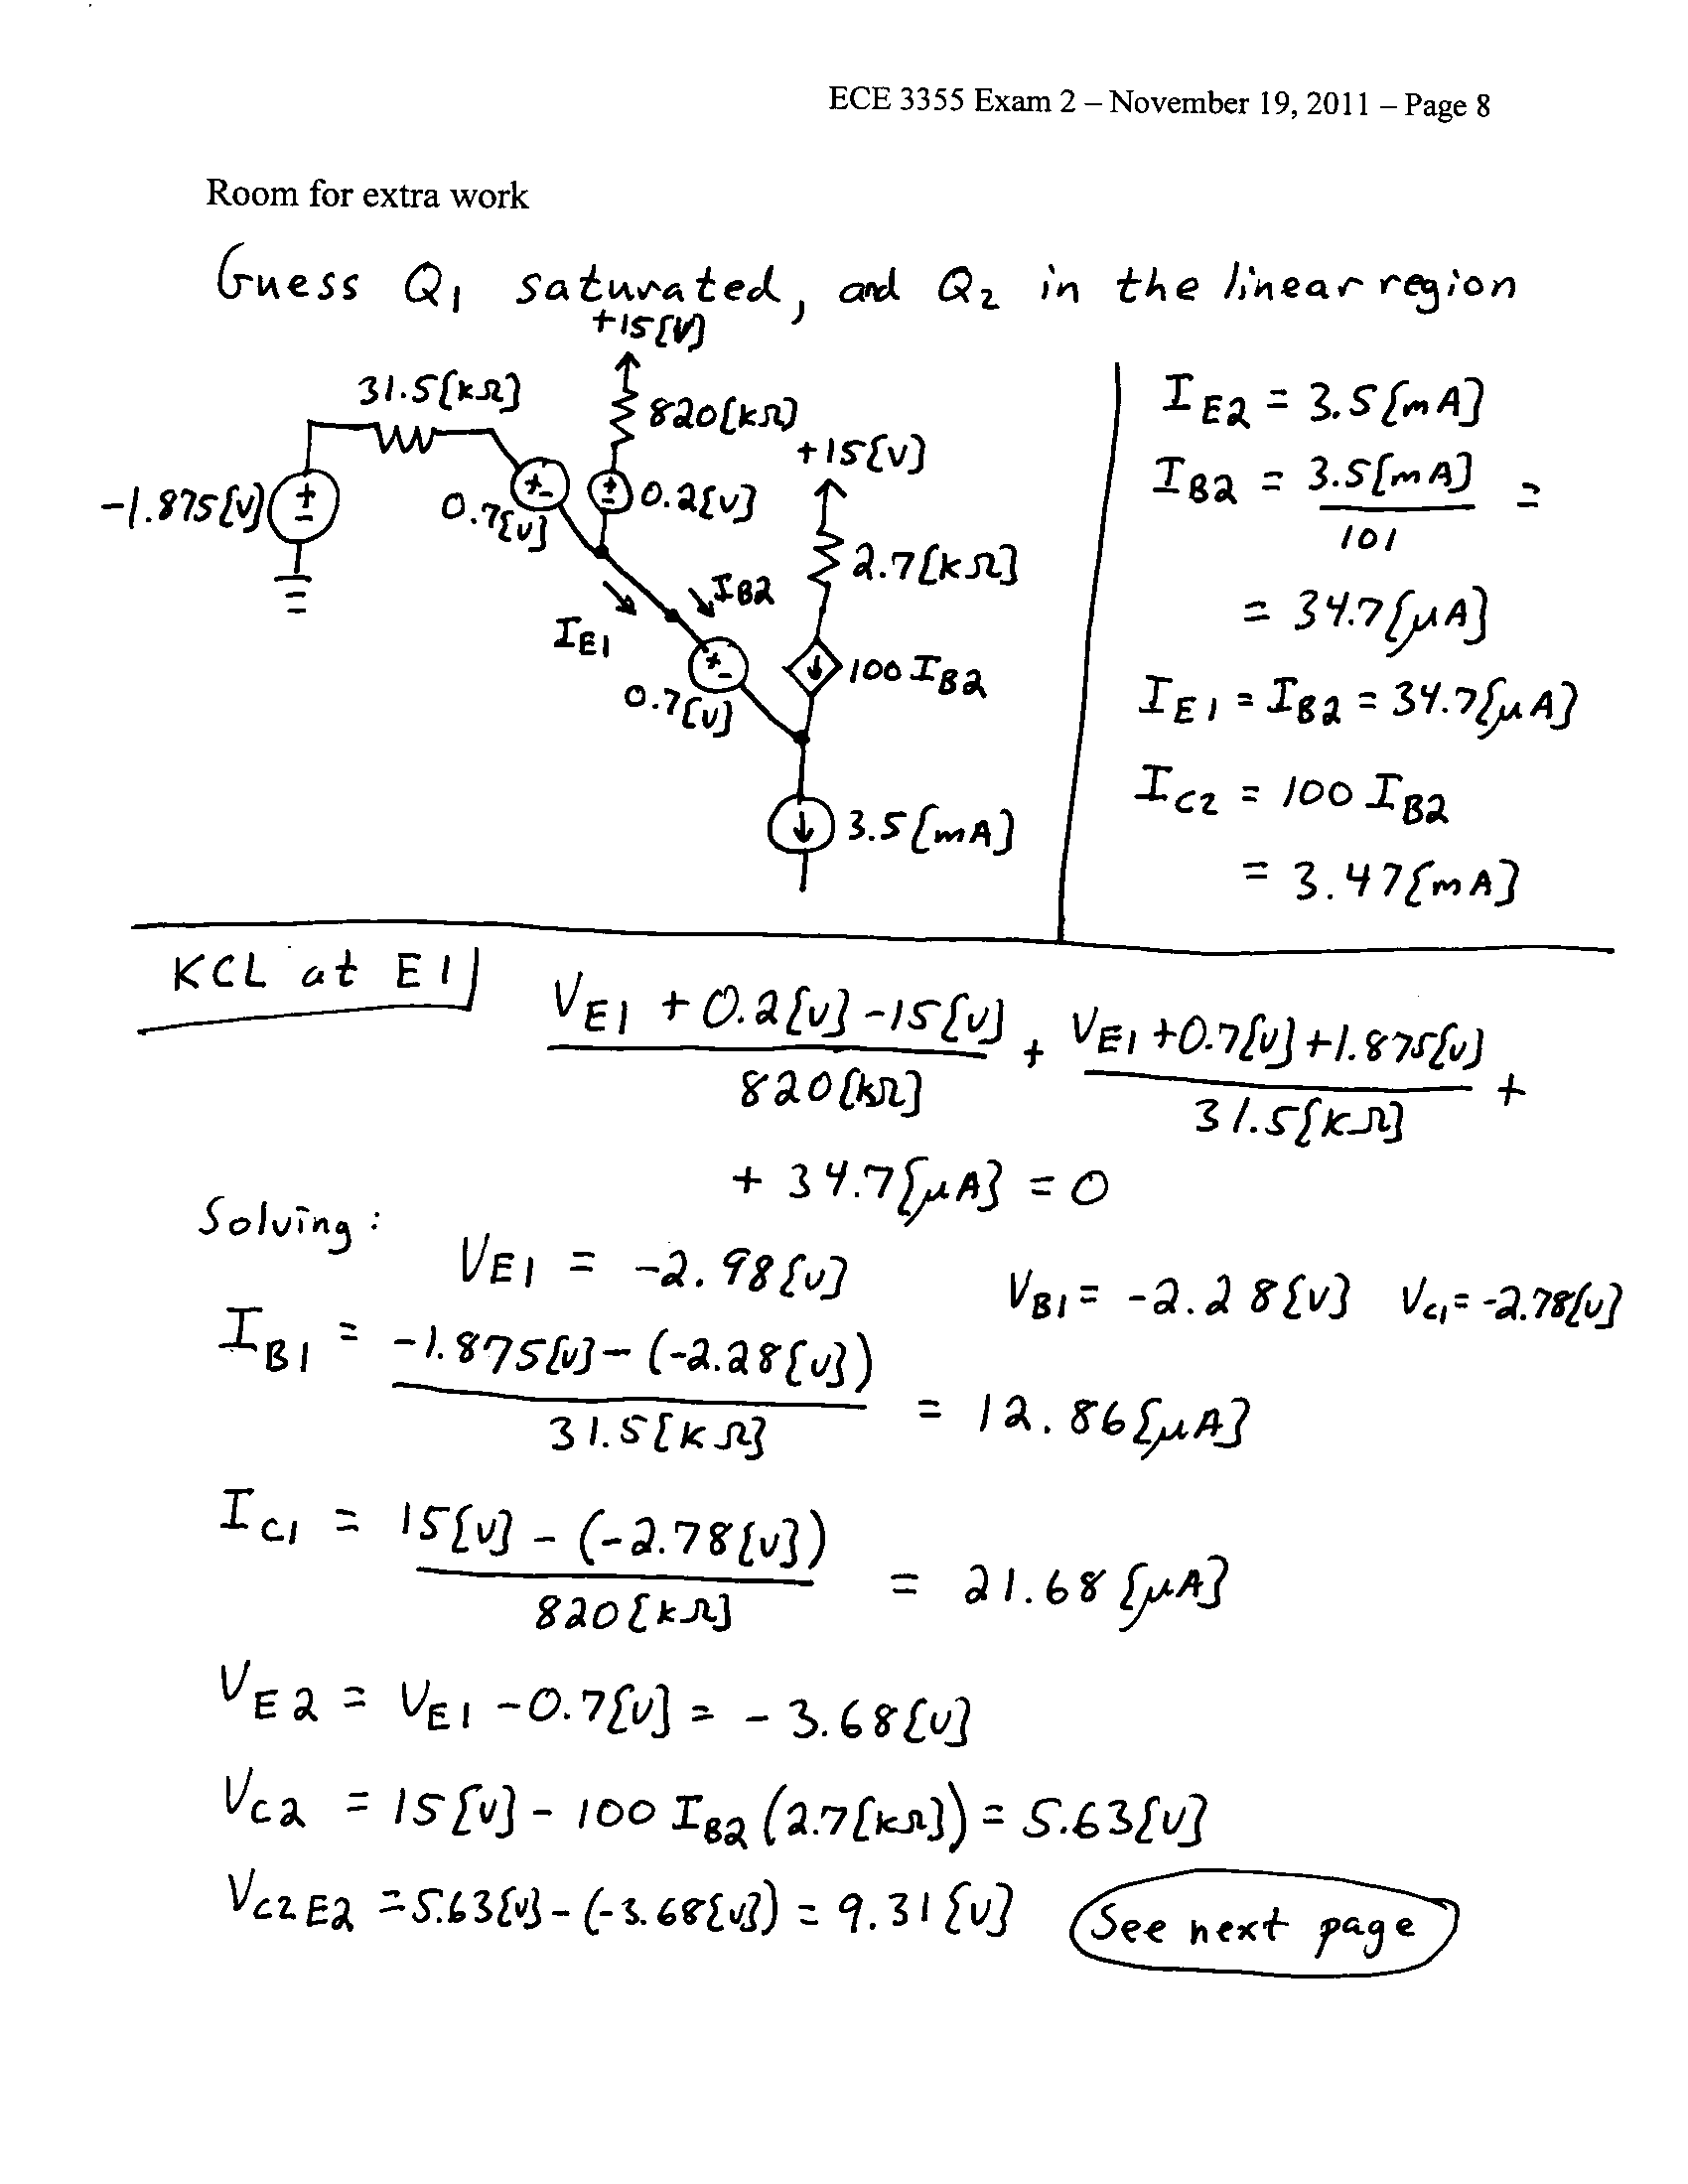 ECE 3355 Exam 2 – November 19, 2011 – Page 8
Room for extra work
Guess Q1 saturated, and Q2 in the linear region
+15[V]
31.5[kΩ]
820[kΩ]
+15[V]
-1.875[V]
0.7[V]
0.2[V]
2.7[kΩ]
IB2
IE1
100 IB2
0.7[V]
3.5[mA]
IE2 = 3.5[mA]
IB2 = 3.5[mA] =
101
= 34.7[μA]
IE1 = IB2 = 34.7[μA]
IC2 = 100 IB2
= 3.47[mA]
KCL at E1
VE1 + 0.2[V] - 15[V] + VE1 + 0.7[V] + 1.875[V] +
820[kΩ] 31.5[kΩ]
+ 34.7[μA] = 0
Solving:
VE1 = -2.98[V] VB1 = -2.28[V] VC1 = -2.78[V]
IB1 = -1.875[V] - (-2.28[V]) = 12.86[μA]
31.5[kΩ]
IC1 = 15[V] - (-2.78[V]) = 21.68[μA]
820[kΩ]
VE2 = VE1 - 0.7[V] = -3.68[V]
VC2 = 15[V] - 100 IB2 (2.7[kΩ]) = 5.63[V]
VC2E2 = 5.63[V] - (-3.68[V]) = 9.31[V]
See next page